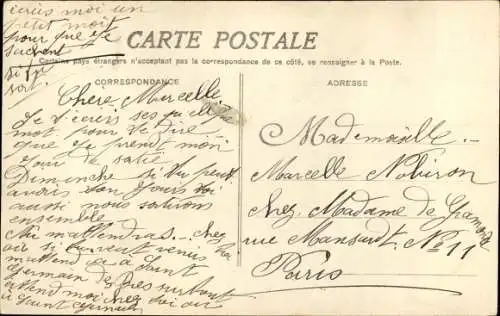 écris moi un
petit mot
pour que je
CARTE POSTALE
Certains pays étrangers n'acceptant pas la correspondance de ce côté, se renseigner à la Poste.
CORRESPONDANCE
ADRESSE
Chère Marcelle
Je t'écris ses quelque
mot pour te dire
que je prend mon
jour de satie
Dimanche si tu peut
avoir ton jours
aussi nous sortirons
ensemble
Tu m'attendras chez toi
ou si tu veut venir
m'attend a Saint
Germain des Pres
attend moi chez toi ou
a Saint Germain
Mademoiselle
Marcelle
chez Madame de
rue Mansart No 11
Paris